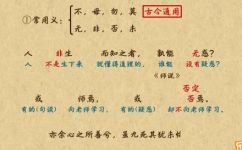 ①常用义：
不，毋，勿，莫
无，非，否，未
古今通用
人 非生 而知之者，孰能 无惑？
人 不是生下来 就懂得道理的， 谁能 没有疑惑？
《师说》
否定
或 师焉， 或 否焉。
有的(句读) 向老师学习， 有的(疑惑) 却不向老师学习。
亦余心之所善兮，虽九死其犹未